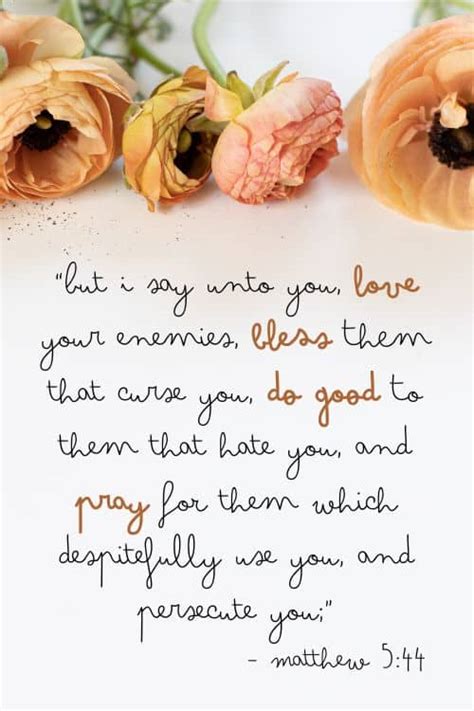 "but i say unto you, love
your enemies, bless them
that curse you, do good to
them that hate you, and
pray for them which
despitefully use you, and
persecute you;"
- matthew 5:44